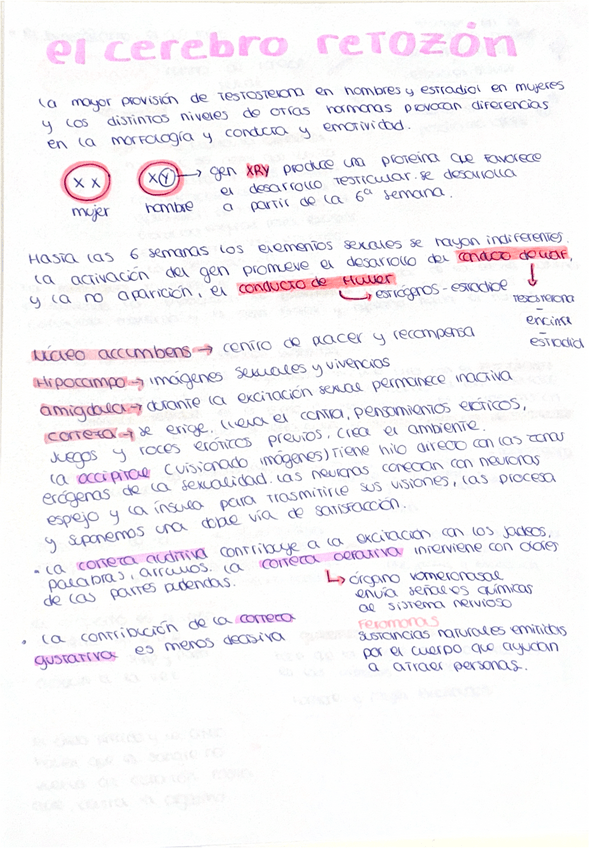 el cerebro retozón
La mayor provisión de testosterona en hombres y estradiol en mujeres
y los distintos niveles de otras hormonas provocan diferencias
en la morfología y conducta y emotividad.
X X
XY → gen XRY produce una proteína que favorece
el desarrollo testicular. Se desarrolla
mujer hombre a partir de la 6ª semana.
Hasta las 6 semanas los elementos sexuales se hayan indiferentes.
La activación del gen promueve el desarrollo del conducto de Wolf,
y la no aparición, el conducto de Muller
↳ estrógenos - estradiol
testosterona
–
encima
–
estradiol
Núcleo accumbens → centro de placer y recompensa
Hipocampo → imágenes sexuales y vivencias
amígdala → durante la excitación sexual permanece inactiva
corteza → se erige, lleva el control, pensamientos eróticos,
juegos y roces eróticos previos, crea el ambiente.
La occipital (visionado imágenes) tiene hilo directo con las zonas
erógenas de la sexualidad. Las neuronas conectan con neuronas
espejo y la ínsula para trasmitirle sus visiones, las procesa
y suponemos una doble vía de satisfacción.
• La corteza auditiva contribuye a la excitación con los jadeos,
palabras, arrullos. La corteza olfativa interviene con olores
de las partes pudendas.
↳ órgano vomeronasal
envía señales químicas
al sistema nervioso
Feromonas
sustancias naturales emitidas
por el cuerpo que ayudan
a atraer personas.
• La contribución de la corteza
gustativa es menos decisiva